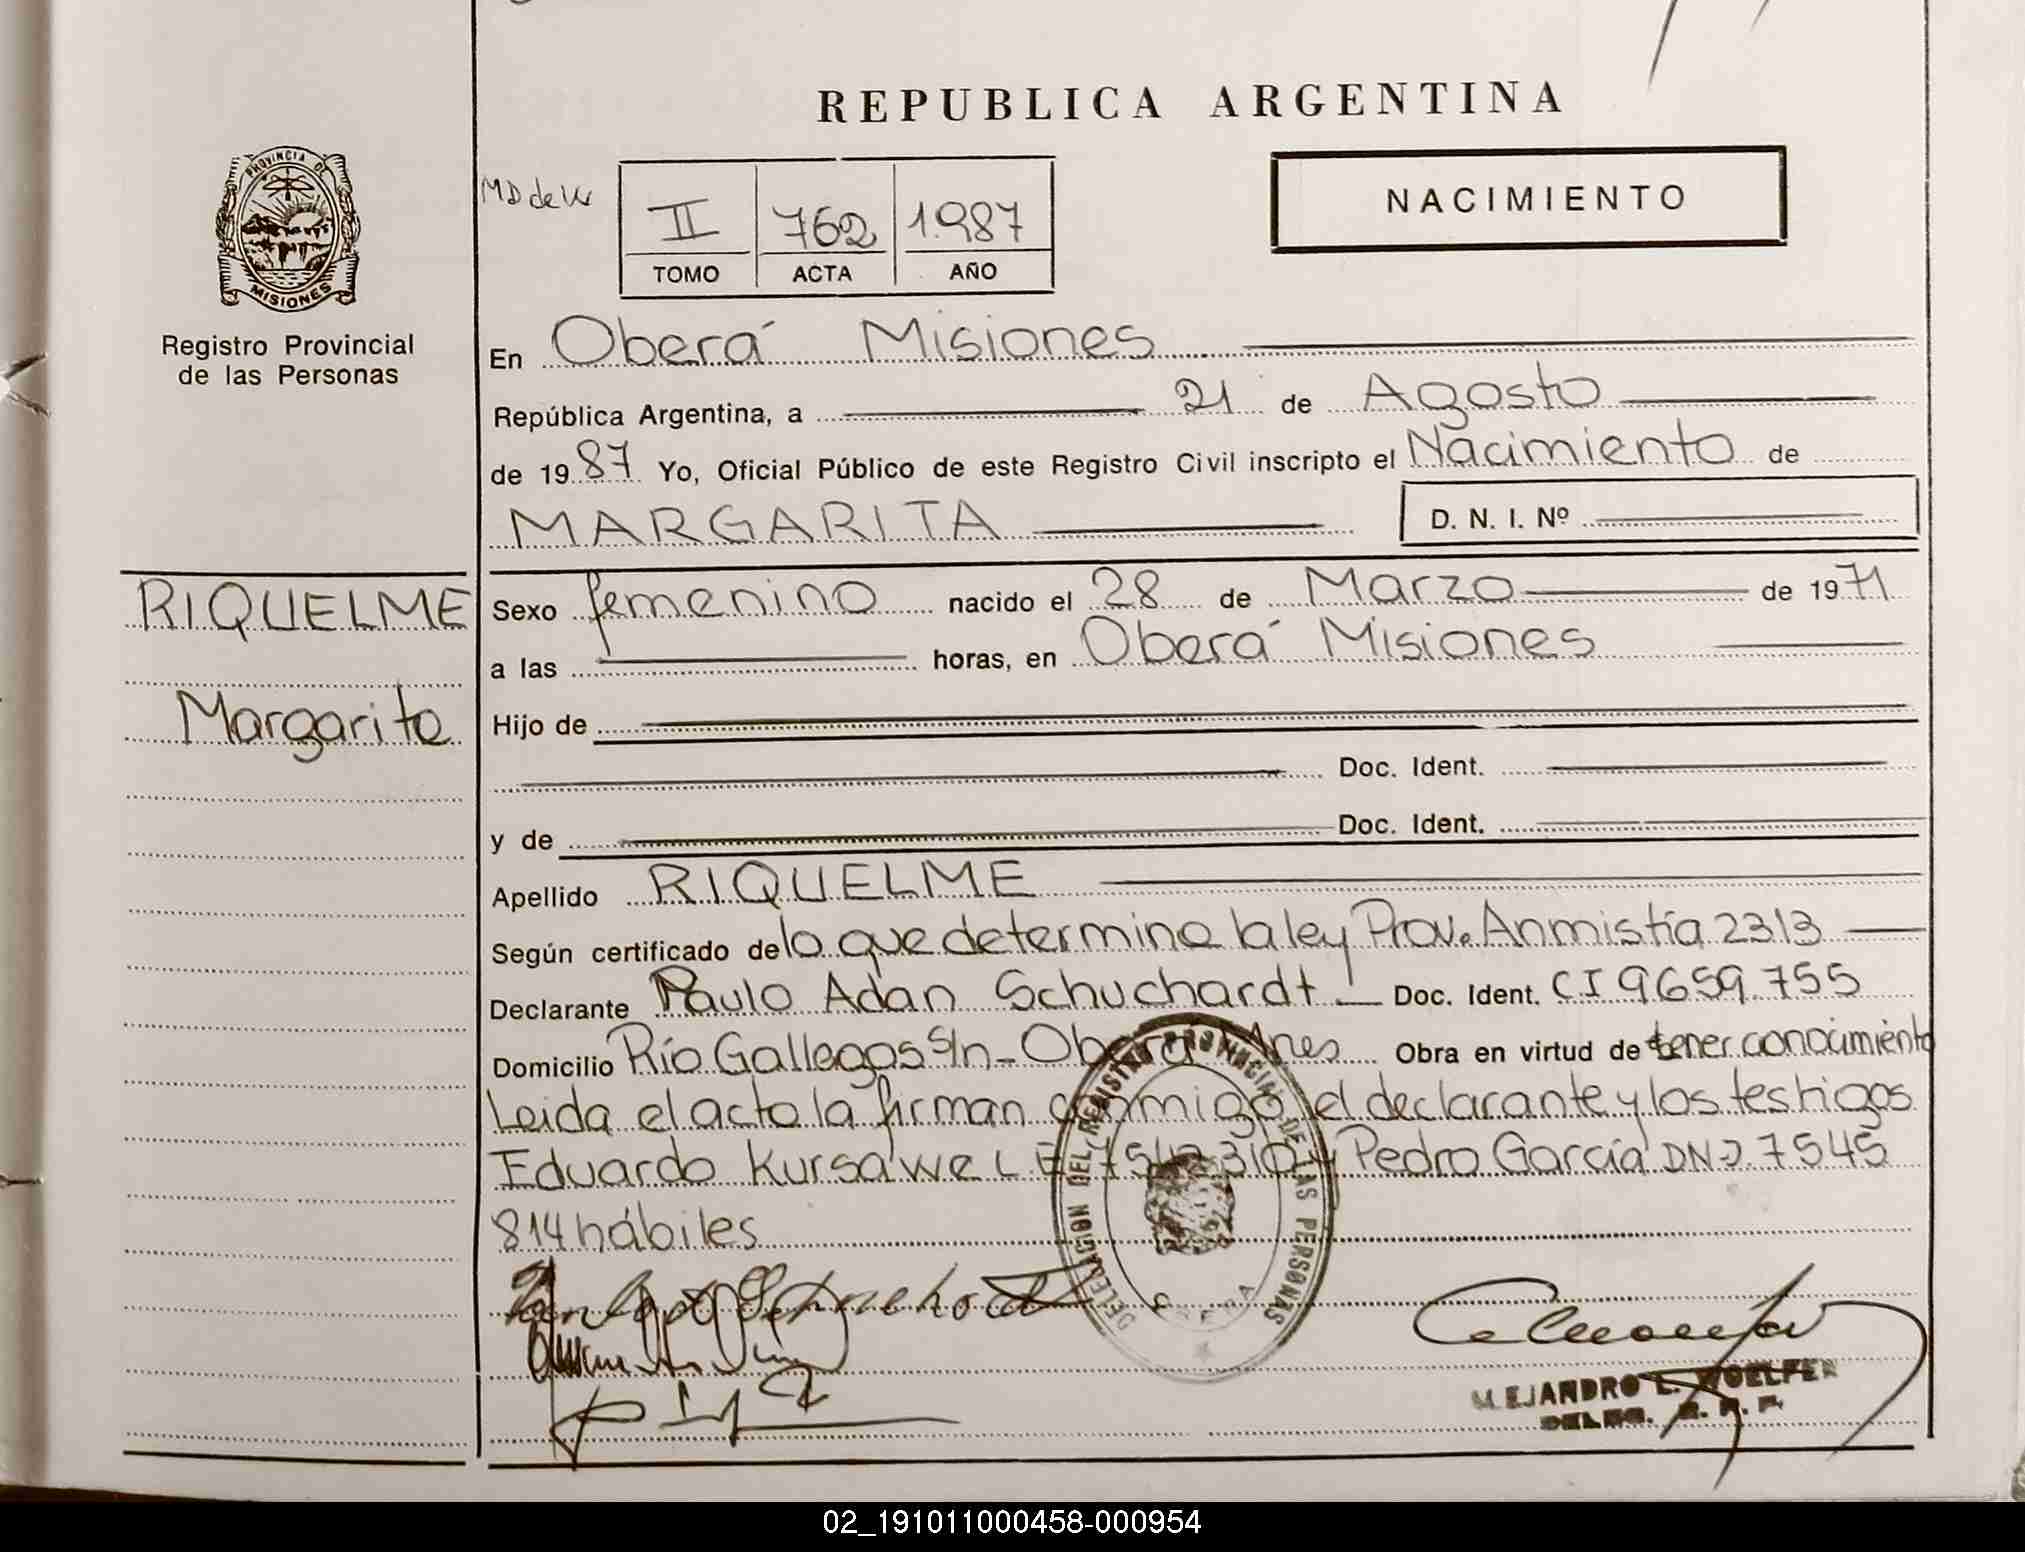 REPUBLICA ARGENTINA
PROVINCIA DE
MISIONES
Registro Provincial
de las Personas
II 762 1.987
TOMO ACTA AÑO
NACIMIENTO
En Oberá Misiones
República Argentina, a 21 de Agosto
de 1987 Yo, Oficial Público de este Registro Civil inscripto el Nacimiento de
MARGARITA D. N. I. Nº
RIQUELME
Margarita
Sexo femenino nacido el 28 de Marzo de 1971
a las horas, en Oberá Misiones
Hijo de
Doc. Ident.
y de Doc. Ident.
Apellido RIQUELME
Según certificado de lo que determina la ley Prov. Anmistía 2313
Declarante Paulo Adan Schuchardt Doc. Ident. CI 9659.755
Domicilio Río Gallegos s/n - Oberá Mnes Obra en virtud de tener conocimiento
Leida el acta la firman conmigo el declarante y los testigos
Eduardo Kursawe L E 7542310 y Pedro García DNI 7545
814 hábiles
DELEGACION DEL REGISTRO PROVINCIAL DE LAS PERSONAS
OBERA
ALEJANDRO L. WOELFER
02_191011000458-000954